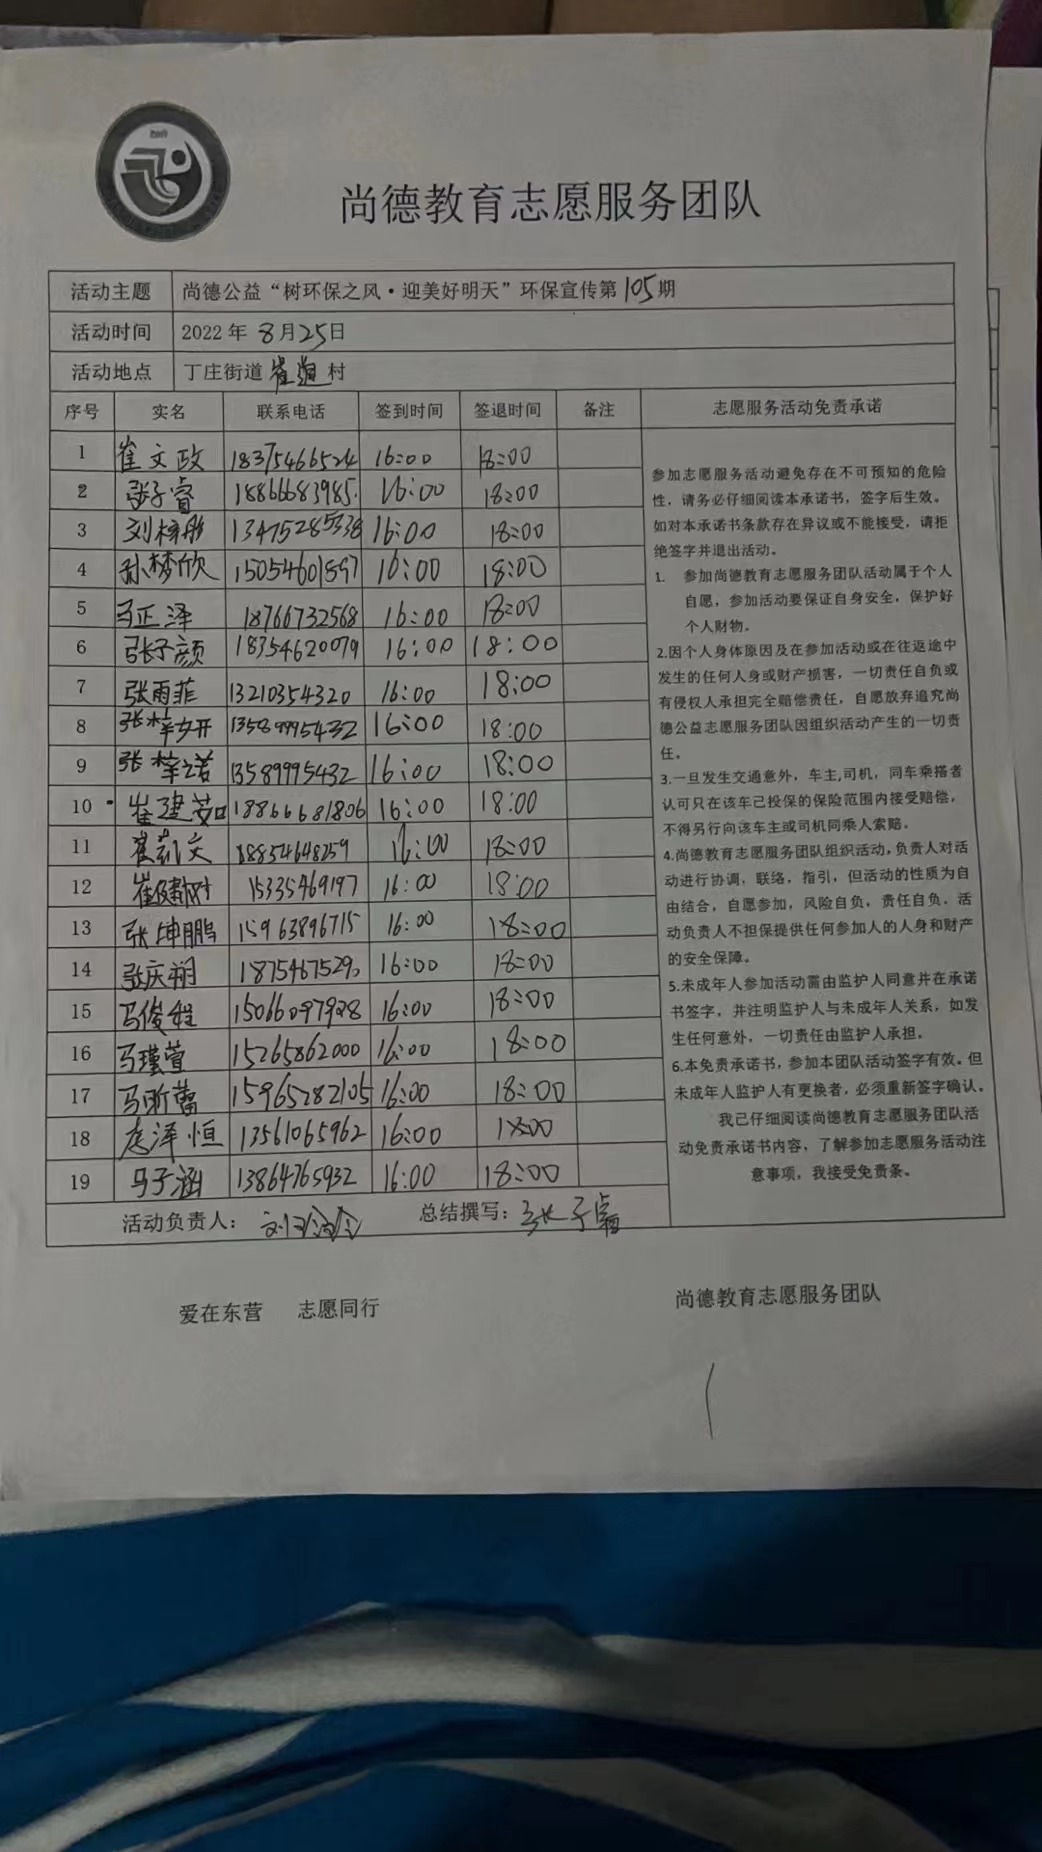 尚德教育志愿服务团队
活动主题 尚德公益“树环保之风·迎美好明天”环保宣传第105期
活动时间 2022年8月25日
活动地点 丁庄街道崔道村
序号 实名 联系电话 签到时间 签退时间 备注 志愿服务活动免责承诺
1 崔文政 18375466524 16:00 18:00
2 张子睿 18866683985 16:00 18:00
3 刘梓彤 13475285338 16:00 18:00
4 孙梦欣 15054601597 16:00 18:00
5 马正泽 18766732568 16:00 18:00
6 张子颜 18354620079 16:00 18:00
7 张雨菲 13210354320 16:00 18:00
8 张梓妍 13589995432 16:00 18:00
9 张梓诺 13589995432 16:00 18:00
10 崔建茹 18866681806 16:00 18:00
11 崔凯文 18854648259 16:00 18:00
12 崔健树 15335469197 16:00 18:00
13 张坤鹏 15963896715 16:00 18:00
14 张庆朔 18754675290 16:00 18:00
15 马俊程 15066097928 16:00 18:00
16 马瑾萱 15265862000 16:00 18:00
17 马昕蕾 15965282105 16:00 18:00
18 泽恒 13561065962 16:00 18:00
19 马子涵 13864765932 16:00 18:00
参加志愿服务活动避免存在不可预知的危险
性，请务必仔细阅读本承诺书，签字后生效。
如对本承诺书条款存在异议或不能接受，请拒
绝签字并退出活动。
1. 参加尚德教育志愿服务团队活动属于个人
自愿，参加活动要保证自身安全，保护好
个人财物。
2.因个人身体原因及在参加活动或在往返途中
发生的任何人身或财产损害，一切责任自负或
有侵权人承担完全赔偿责任，自愿放弃追究尚
德公益志愿服务团队因组织活动产生的一切责
任。
3.一旦发生交通意外，车主,司机，同车乘搭者
认可只在该车已投保的保险范围内接受赔偿，
不得另行向该车主或司机同乘人索赔。
4.尚德教育志愿服务团队组织活动，负责人对活
动进行协调，联络，指引，但活动的性质为自
由结合，自愿参加，风险自负，责任自负。活
动负责人不担保提供任何参加人的人身和财产
的安全保障。
5.未成年人参加活动需由监护人同意并在承诺
书签字，并注明监护人与未成年人关系，如发
生任何意外，一切责任由监护人承担。
6.本免责承诺书，参加本团队活动签字有效。但
未成年人监护人有更换者，必须重新签字确认。
我已仔细阅读尚德教育志愿服务团队活
动免责承诺书内容，了解参加志愿服务活动注
意事项，我接受免责条。
活动负责人： 总结撰写：张子睿
爱在东营 志愿同行
尚德教育志愿服务团队